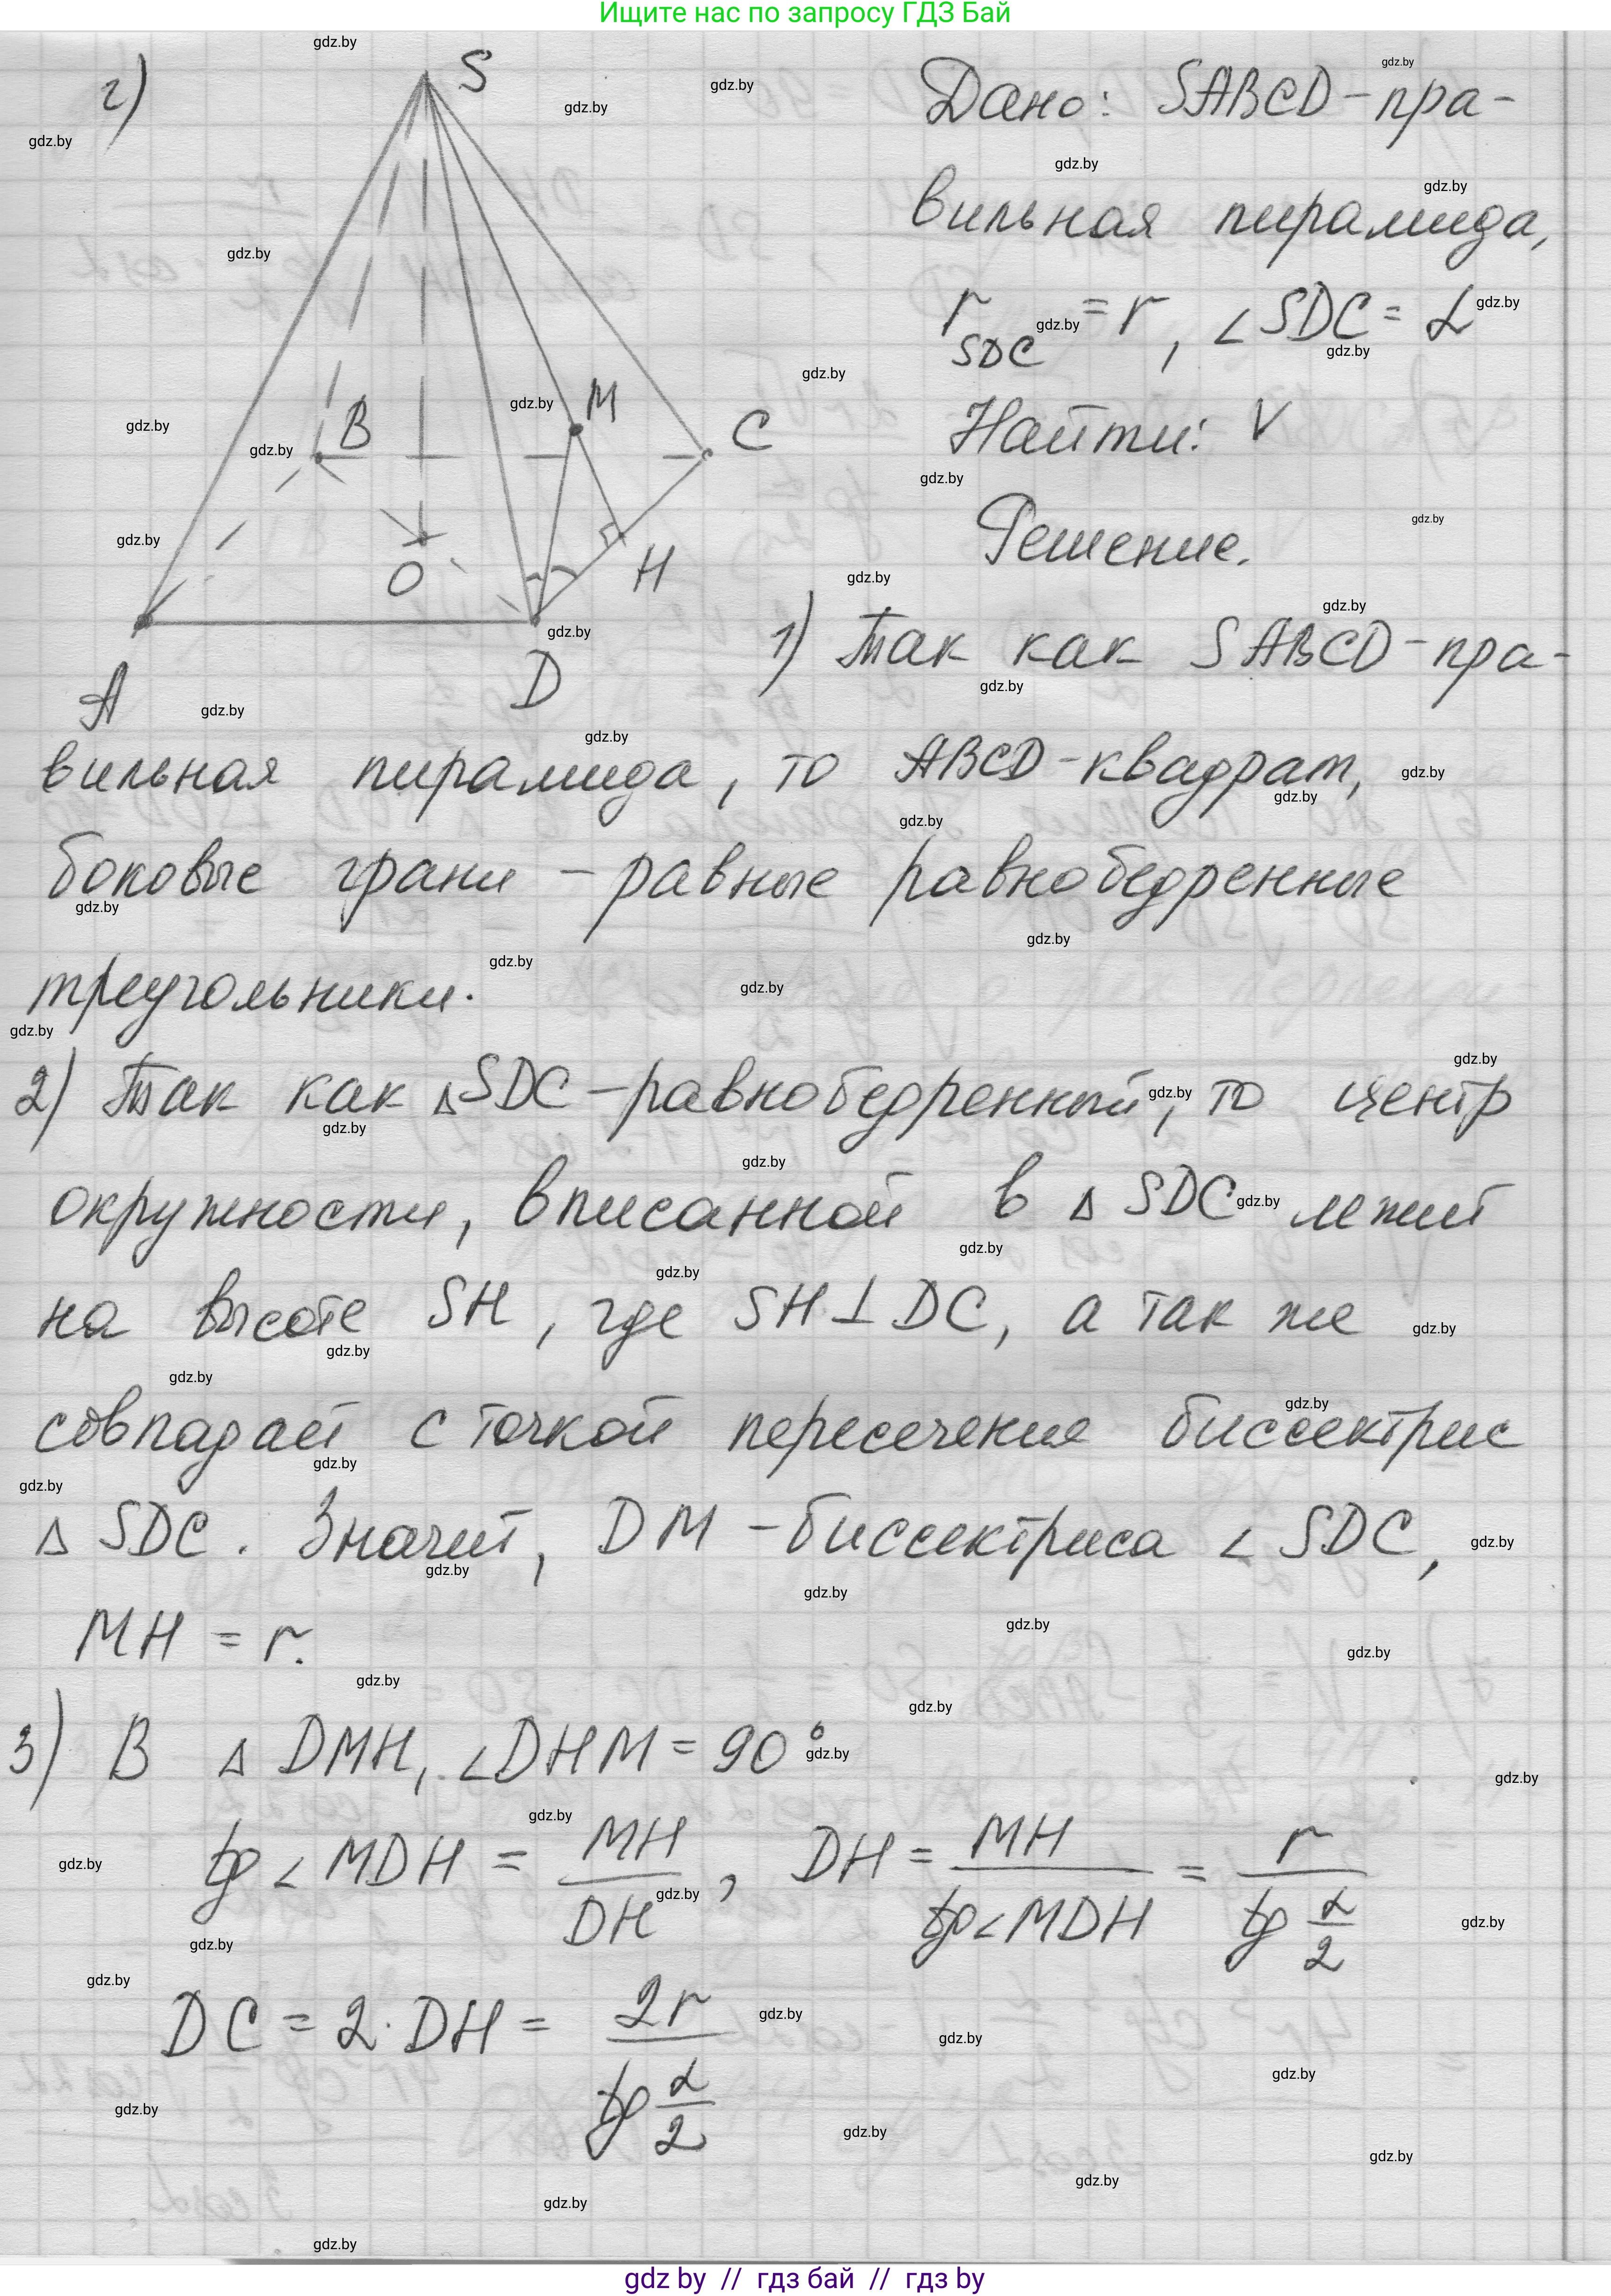 Ищите нас по запросу ГДЗ Бай
г)
S
B
M
C
O
H
A
D
Дано: SABCD - пра-
вильная пирамида,
r SDC = r, ∠SDC = α
Найти: V
Решение.
1) Так как SABCD - пра-
вильная пирамида, то ABCD - квадрат,
боковые грани - равные равнобедренные
треугольники.
2) Так как △SDC - равнобедренный, то центр
окружности, вписанной в △SDC лежит
на высоте SH, где SH⊥DC, а так же
совпадает с точкой пересечения биссектрис
△SDC. Значит, DM - биссектриса ∠SDC,
MH = r.
3) В △DMH, ∠DHM = 90°
tg∠MDH = MH/DH, DH = MH/tg∠MDH = r/tg α/2
DC = 2·DH = 2r/tg α/2
gdz by // гдз бай // гдз by